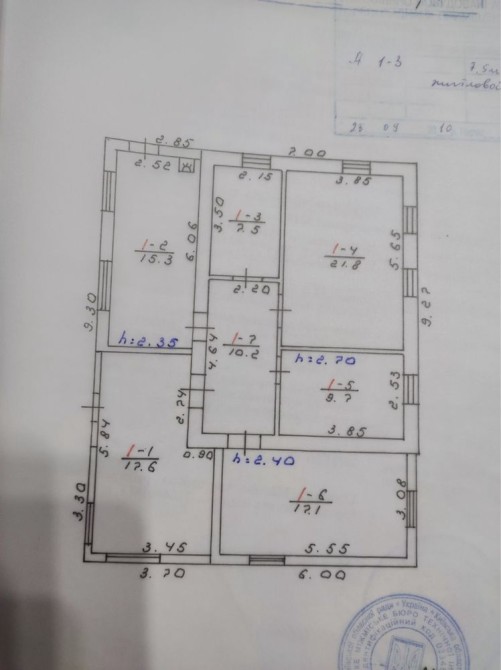 А 1-3
28 08 10
2.85
2.52
Ж
7.00
2.15
3.85
3.50
1-3
7.5
6.06
1-2
15.3
1-4
21.8
5.65
9.30
2.20
9.27
h=2.35
4.64
1-7
10.2
h=2.70
1-5
9.7
2.53
2.74
3.85
5.84
1-1
17.6
0.90
h=2.40
1-6
17.1
3.08
3.30
3.45
5.55
3.70
6.00